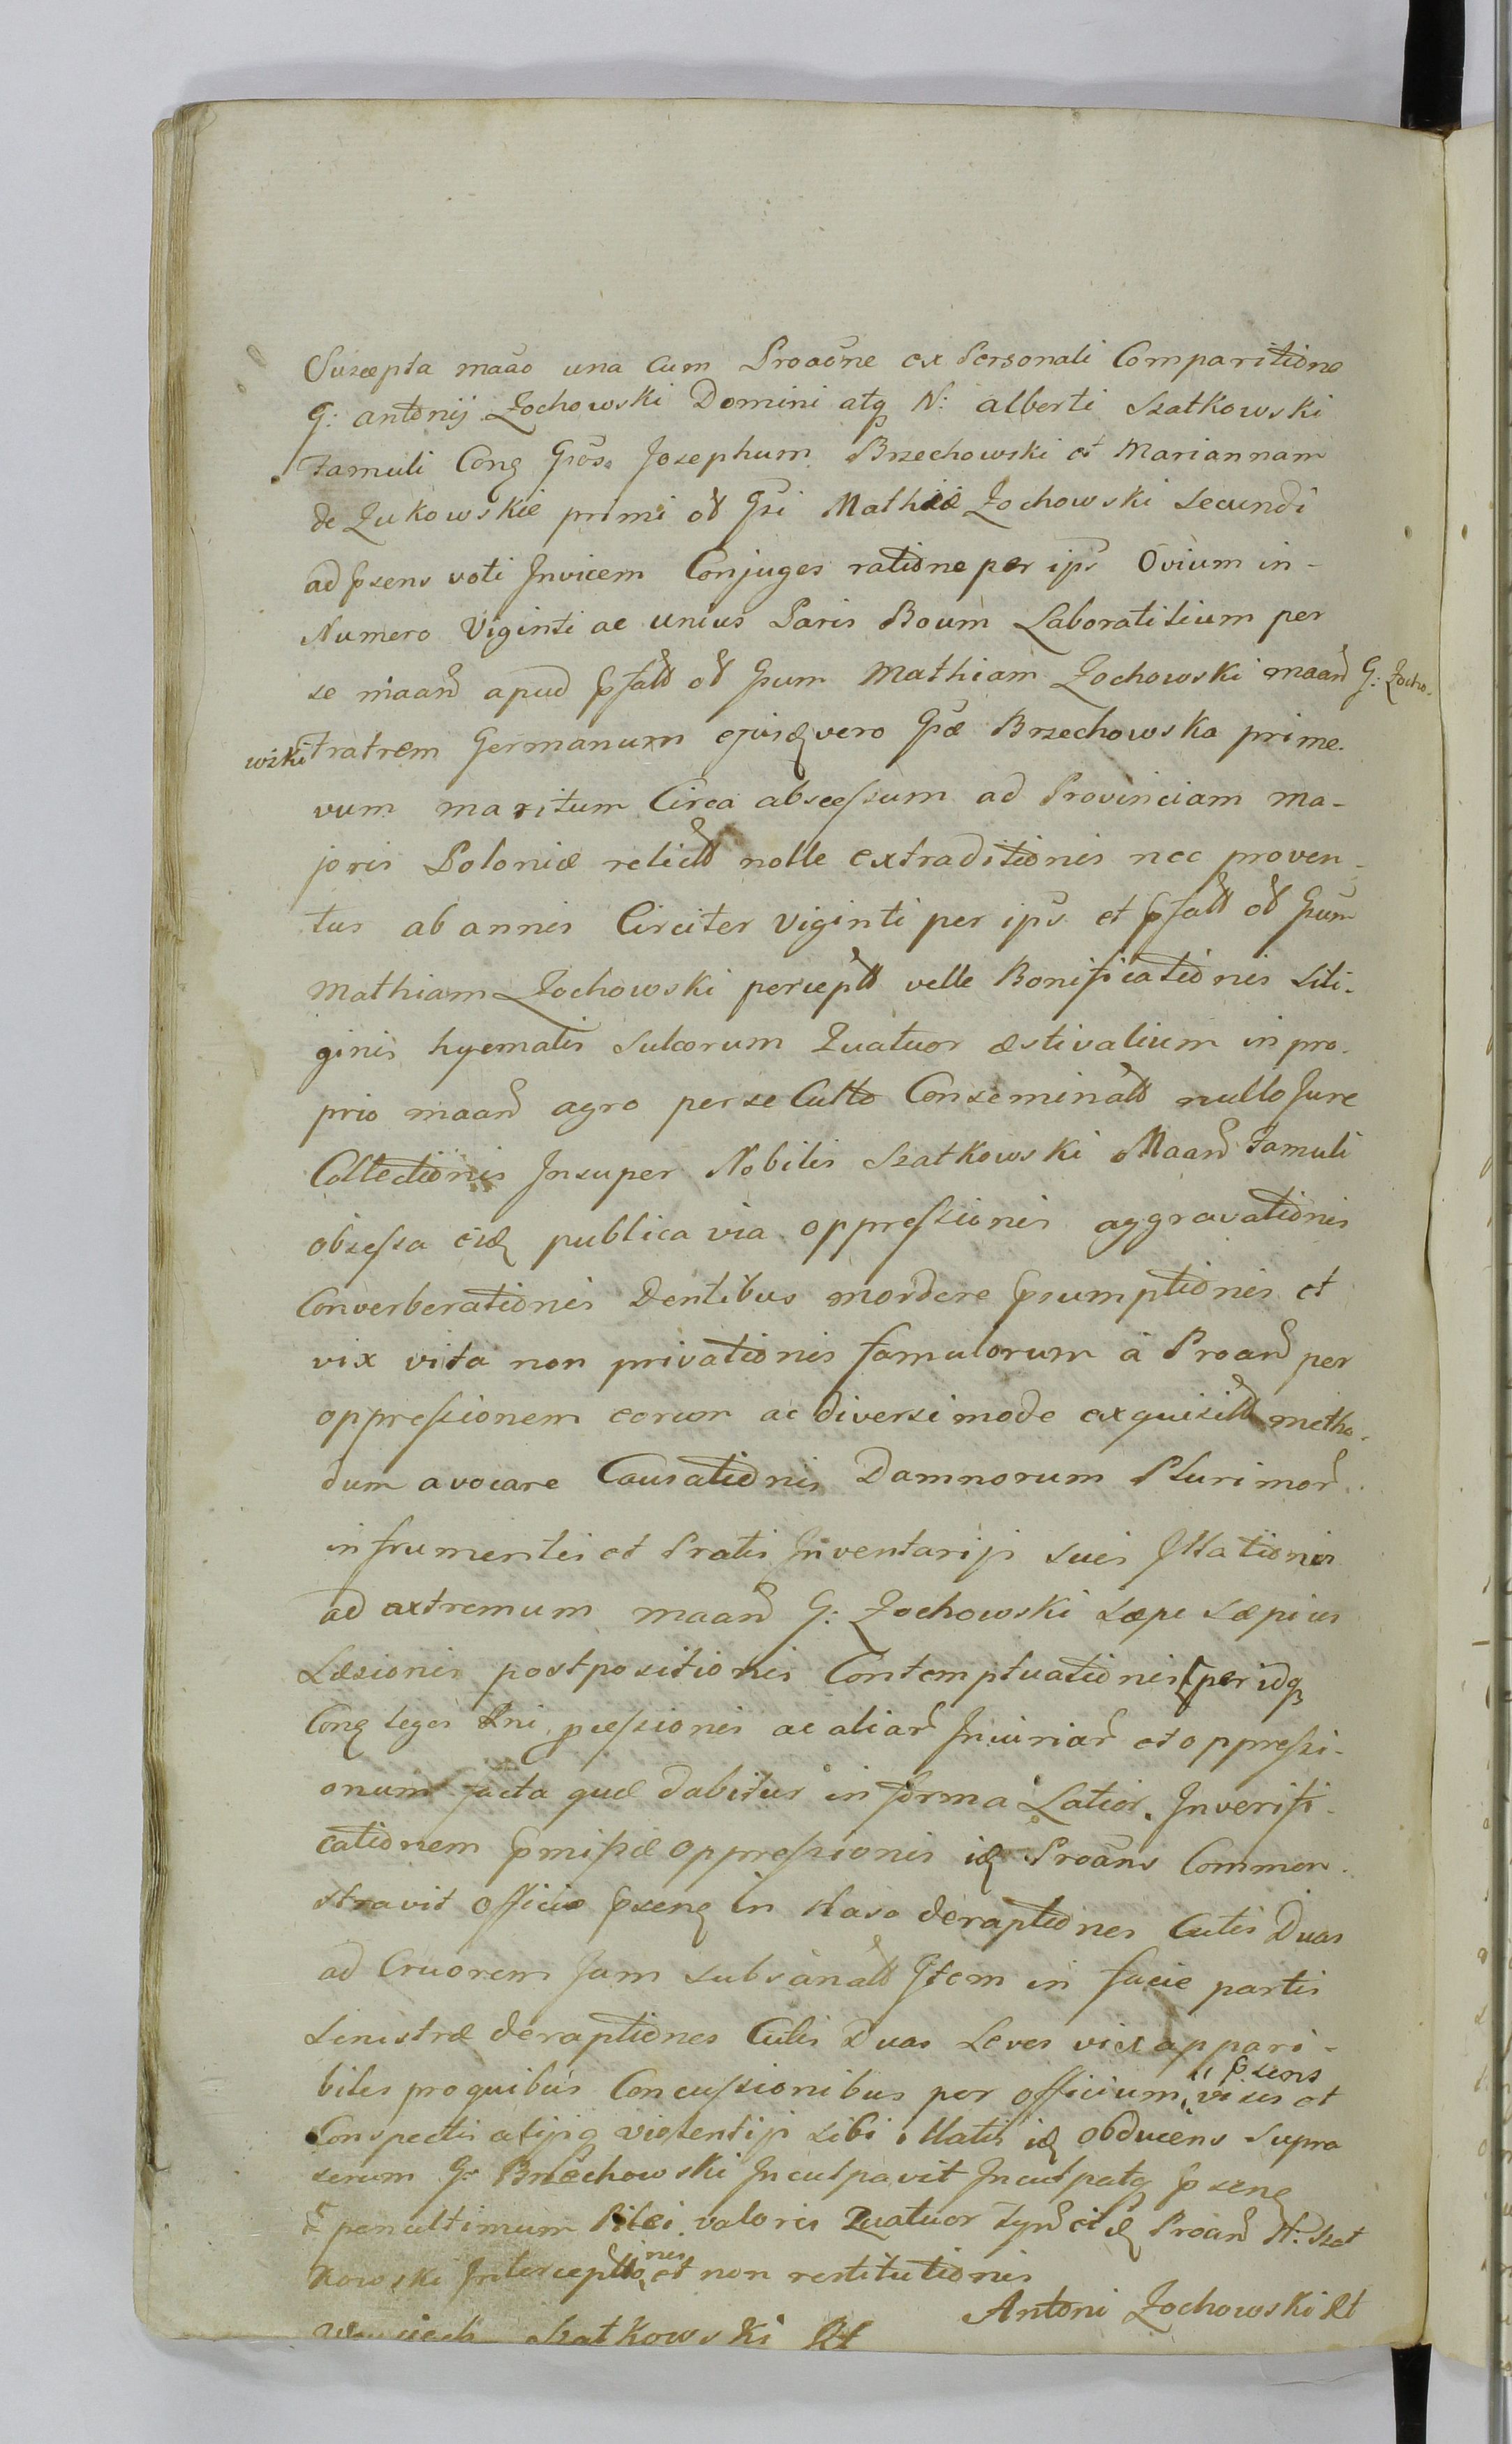 Suscepta maão una cum Proaõne ex Personali Comparitione
G: antonij Zochowski Domini atq N: alberti Szatkowski
Famuli Conq Gõs Josephum Brzechowski et Mariannam
de Zukowskie primi oł Gsi Mathiæ Zochowski secundi
ad psens voti Invicem Conjuges ratione per ips Ovium in-
Numero Viginti ac unius Paris Boum Laboratitium per
se maan̄ apud pfatt oł Gsum Mathiam Zochowski maan̄ G: Zocho-
wski Fratrem Germanum ejusq vero Gsæ Brzechowska prime-
vum maritum Circa abscessum ad Provinciam ma-
joris Poloniæ relictt nolle extraditionis nec proven-
tus ab annis Circiter Viginti per ips et pfatt oł Gsum
Mathiam Zochowski perceptt velle Bonificationis Sili-
ginis hyemalis sulcorum Quatuor æstivalium in pro-
prio maan̄ agro per se Culto Conseminatt nullo Jure
Collectionis Insuper Nobilis Szatkowski Maan̄ Famuli
obsessa eidq publica via oppressionis aggravationis
Converberationis Dentibus mordere psumptionis et
vix vita non privationis famulorum à Proan̄ per
oppressionem eorum ac diversimode exquisitt metho-
dum avocare Causationis Damnorum Plurimor̄
in frumentis et Pratis Inventarijs suis Illationis
ad extremum maan̄ G: Zochowski sæpe sæpius
Læsionis postpositionis Contemptuationis per idq
Conq leges Rni pcessionis ac aliar̄ Iniuriar̄ et oppressi-
onum facta quæ dabitur in forma Latior. In verifi-
cationem pmissæ oppressionis idq Proãns Commen-
stravit Officio psenq in Naso deraptiones Cutis Duas
ad Cruorem Jam subsanatt Item in facie partis
sinistræ deraptiones Cutis Duas Leves vix appari-
biles pro quibus Concussionibus per Officium psens visis et
Conspectis alijsq violentijs sibi illatis idq obducens supra
serum G: Brzechowski Inculpavit Inculpatq psenq
penultimum Pilei valoris Quatuor Tynf eidq Proan̄ N: Szat
kowski Interceptionis et non restitutionis
Antoni Zochowski Rt
Woyciech Szatkowski Rt